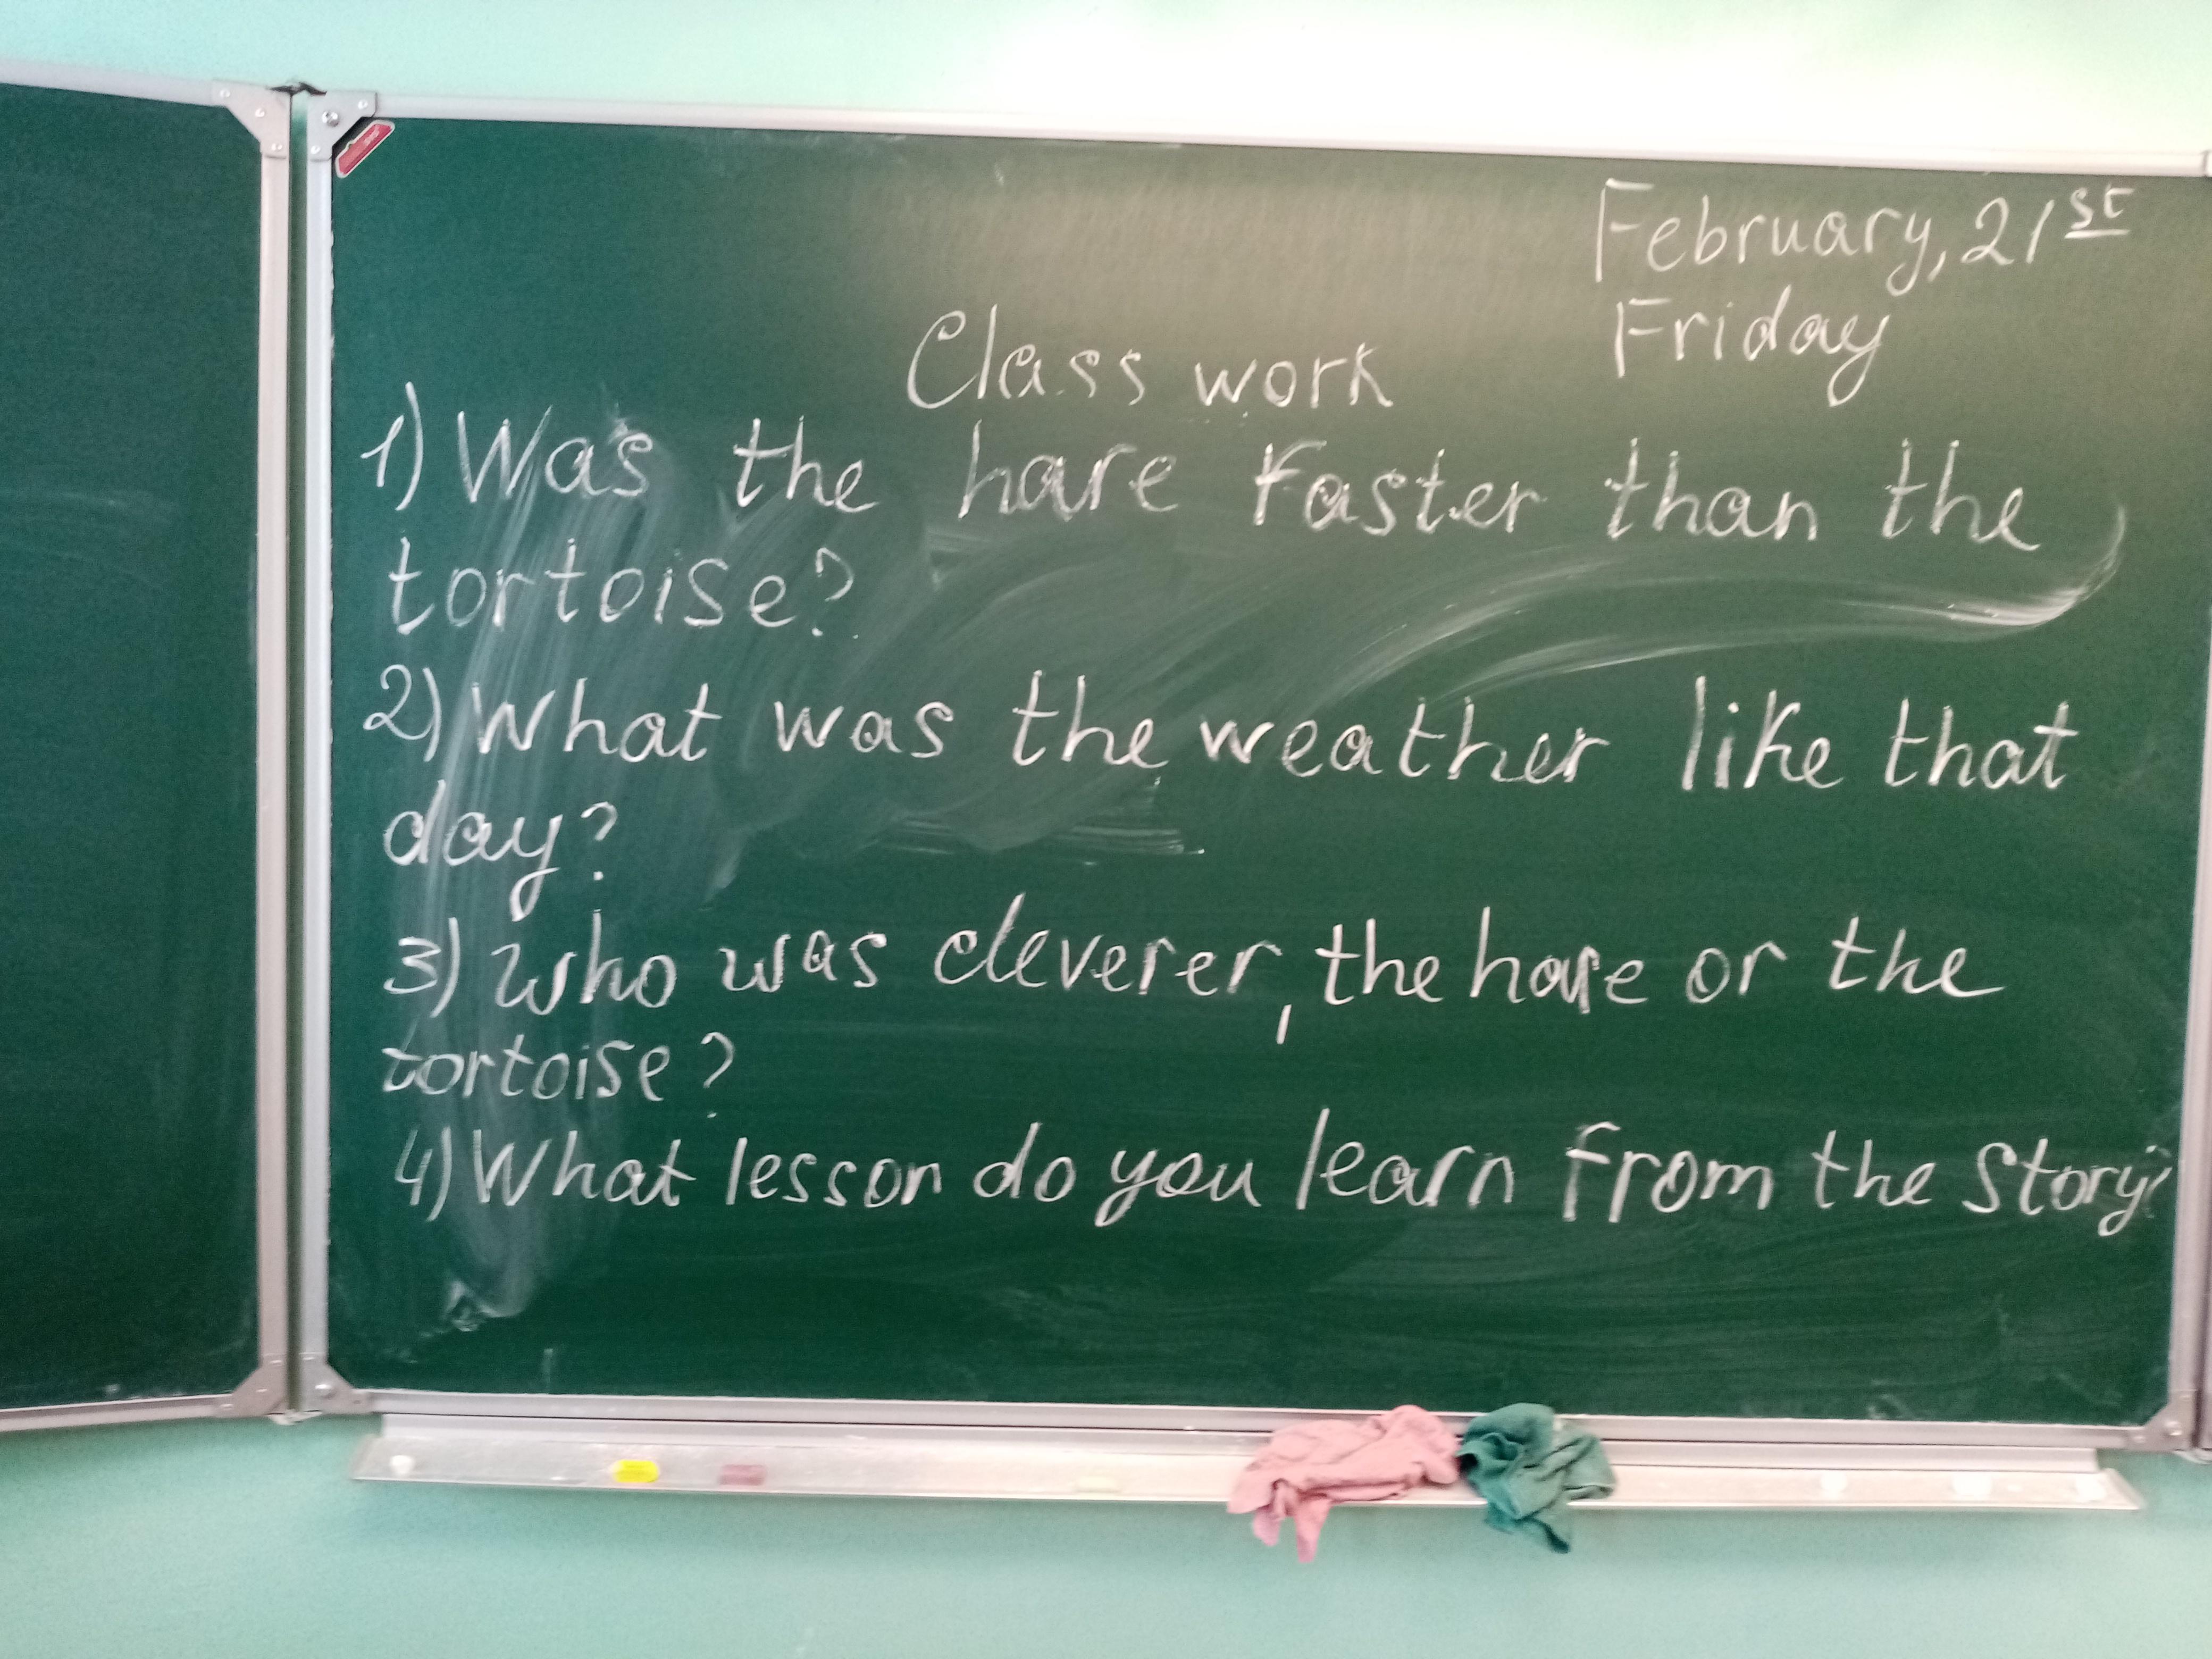 February, 21st
Friday
Class work
1) Was the hare faster than the
tortoise?
2) What was the weather like that
day?
3) Who was cleverer, the hare or the
tortoise?
4) What lesson do you learn from the story?